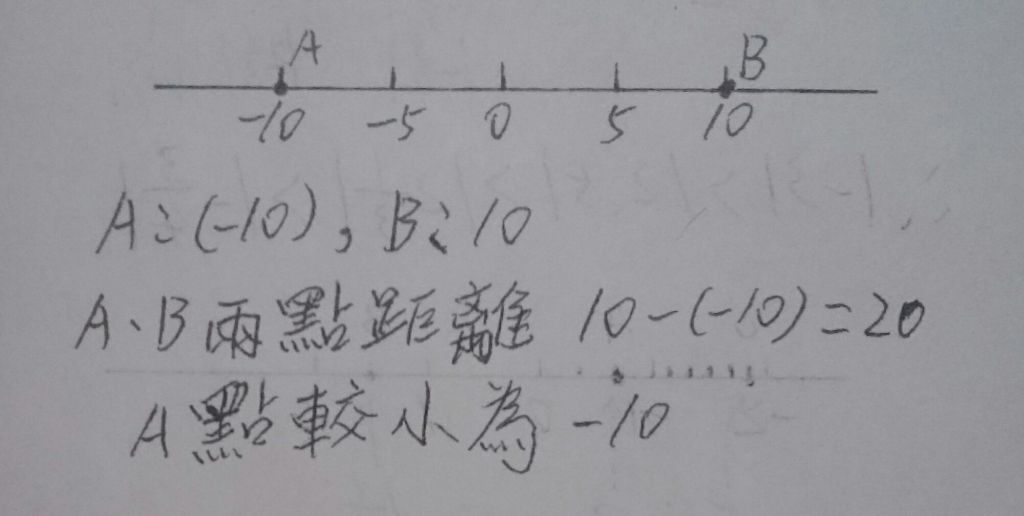 A B
-10 -5 0 5 10
A：(-10)，B：10
A、B兩點距離 10-(-10)=20
A點較小為 -10